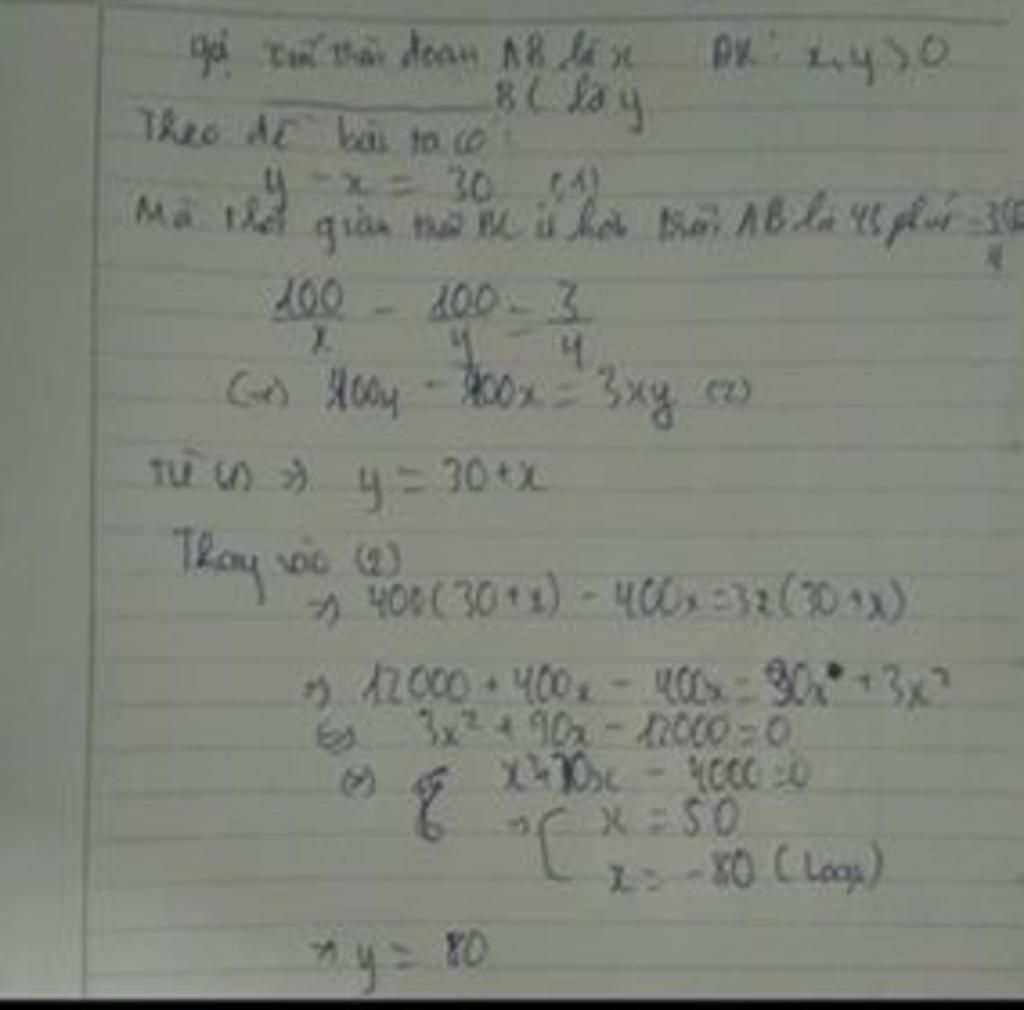 gọi vtốc trên đoạn AB là x ĐK: x, y > 0
BC là y
Theo đề bài ta có:
y - x = 30 (1)
Mà thời gian trên BC ít hơn trên AB là 45 phút = 3/4
100/x - 100/y = 3/4
(=) 400y - 400x = 3xy (2)
Từ (1) => y = 30 + x
Thay vào (2)
=> 400(30 + x) - 400x = 3x(30 + x)
=> 12000 + 400x - 400x = 90x + 3x²
(=) 3x² + 90x - 12000 = 0
(=) x² + 30x - 4000 = 0
=> [ x = 50
x = -80 (loại)
=> y = 80